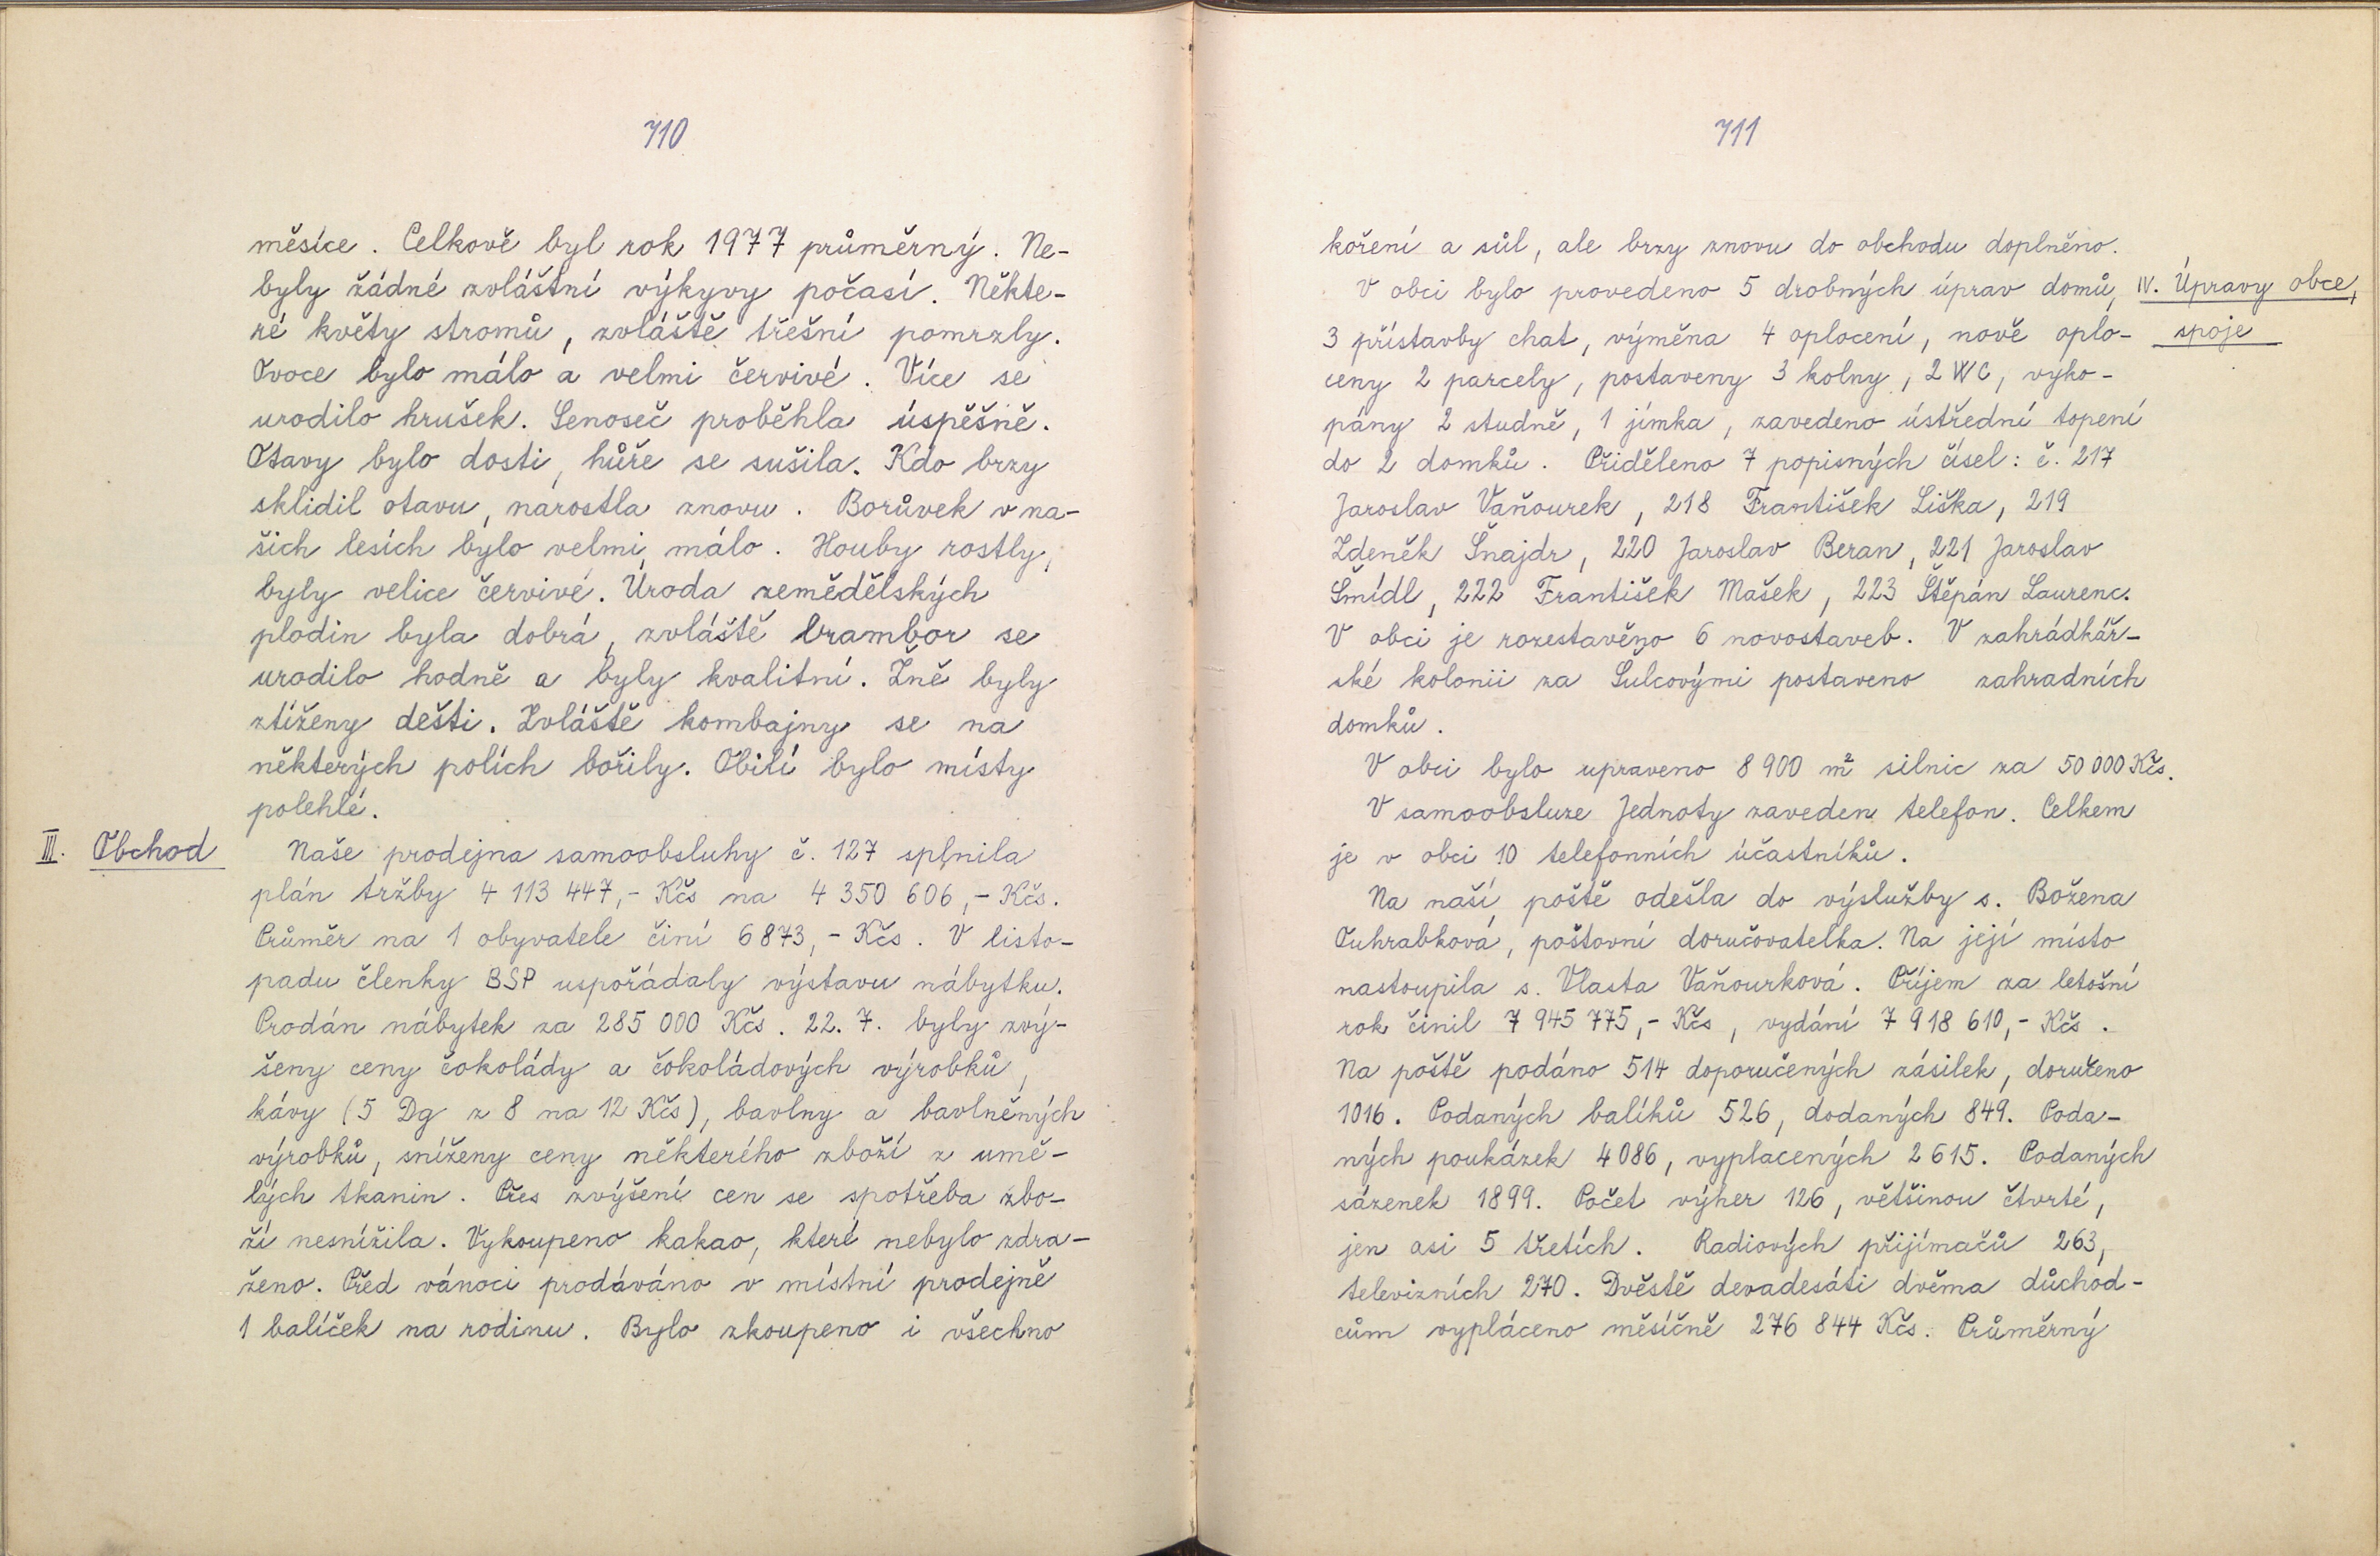 710
měsíce. Celkově byl rok 1977 průměrný. Ne-
byly žádné zvláštní výkyvy počasí. Někte-
ré květy stromů, zvláště třešní pomrzly.
Ovoce bylo málo a velmi červivé. Více se
urodilo hrušek. Senoseč proběhla úspěšně.
Otavy bylo dosti, hůře se sušila. Kdo brzy
sklidil otavu, narostla znovu. Borůvek v na-
šich lesích bylo velmi málo. Houby rostly,
byly velice červivé. Úroda zemědělských
plodin byla dobrá, zvláště brambor se
urodilo hodně a byly kvalitní. Žně byly
ztíženy dešti. Zvláště kombajny se na
některých polích bořily. Obilí bylo místy
polehlé.
III. Obchod
Naše prodejna samoobsluhy č. 127 splnila
plán tržby 4 113 447,- Kčs na 4 350 606,- Kčs.
Průměr na 1 obyvatele činí 6 873,- Kčs. V listo-
padu členky BSP uspořádaly výstavu nábytku.
Prodán nábytek za 285 000 Kčs. 22. 7. byly zvý-
šeny ceny čokolády a čokoládových výrobků,
kávy (5 Dg z 8 na 12 Kčs), bavlny a bavlněných
výrobků, sníženy ceny některého zboží z umě-
lých tkanin. Přes zvýšení cen se spotřeba zbo-
ží nesnížila. Vykoupeno kakao, které nebylo zdra-
ženo. Před vánoci prodáváno v místní prodejně
1 balíček na rodinu. Bylo zkoupeno i všechno
711
koření a sůl, ale brzy znovu do obchodu doplněno.
IV. Úpravy obce,
spoje
V obci bylo provedeno 5 drobných úprav domů,
3 přístavby chat, výměna 4 oplocení, nově oplo-
ceny 2 parcely, postaveny 3 kolny, 2 WC, vyko-
pány 2 studně, 1 jímka, zavedeno ústřední topení
do 2 domků. Přiděleno 7 popisných čísel: č. 217
Jaroslav Vaňourek, 218 František Liška, 219
Zdeněk Šnajdr, 220 Jaroslav Beran, 221 Jaroslav
Šmídl, 222 František Mašek, 223 Štěpán Laurenc.
V obci je rozestavěno 6 novostaveb. V zahrádkář-
ské kolonii za Šulcovými postaveno zahradních
domků.
V obci bylo upraveno 8 900 m² silnic za 50 000 Kčs.
V samoobsluze Jednoty zaveden telefon. Celkem
je v obci 10 telefonních účastníků.
Na naší poště odešla do výslužby s. Božena
Tuhrabková, poštovní doručovatelka. Na její místo
nastoupila s. Vlasta Vaňourková. Příjem za letošní
rok činil 7 945 775,- Kčs, vydání 7 918 610,- Kčs.
Na poště podáno 514 doporučených zásilek, doručeno
1016. Podaných balíků 526, dodaných 849. Poda-
ných poukázek 4 086, vyplacených 2 615. Podaných
sázenek 1899. Počet výher 126, většinou čtvrté,
jen asi 5 třetích. Radiových přijímačů 263,
televizních 270. Dvěstě devadesáti dvěma důchod-
cům vypláceno měsíčně 276 844 Kčs. Průměrný